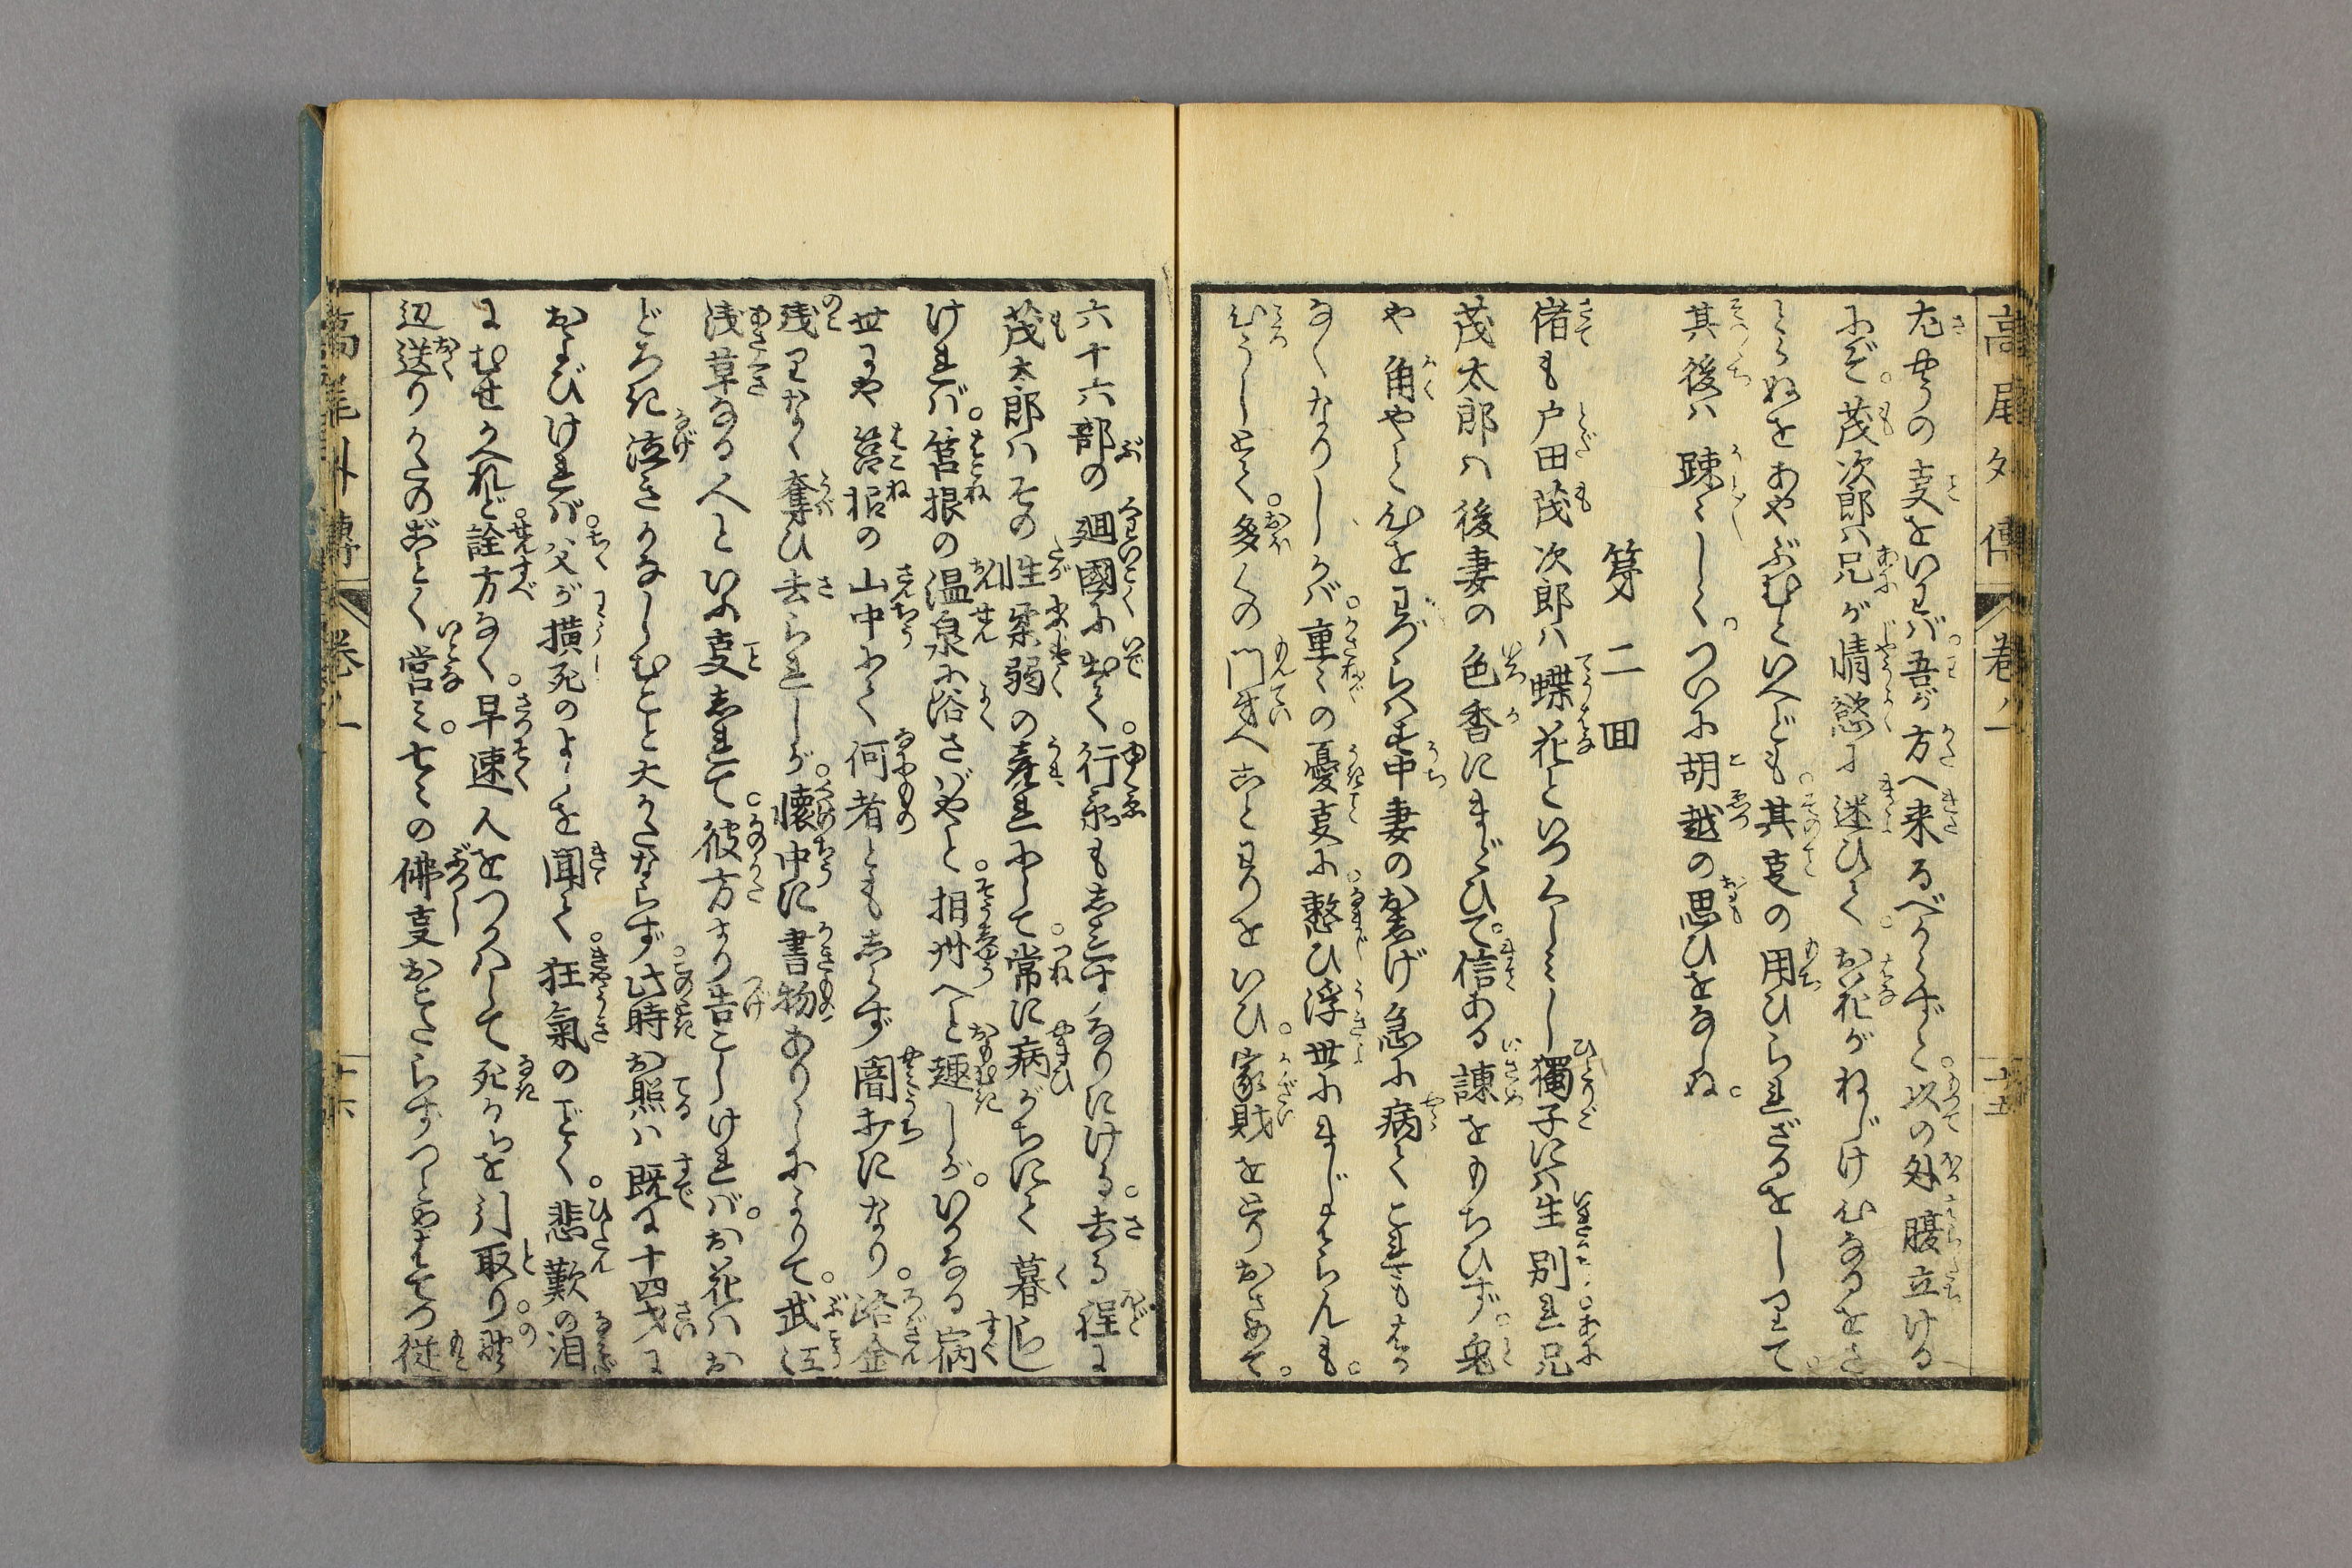 高尾外傳 巻ノ一 十五
左やうの支をいはゞ吾が方へ来るべからずと以の外腹立ける
にぞ茂次郎ハ兄が情慾に迷ひてお花がねぢけ心なるをさ
とらぬをあやぶむといへども其支の用ひられざるをしりて
其後ハ踈〻しくつひに胡越の思ひをなしぬ
第二回
偖も戸田茂次郎ハ蝶花といつくしみし獨子にハ生別れ兄
茂太郎ハ後妻の色香にまどひて信ある諌をもちひず兎
や角やと心をわづらハす中妻のおしげ急に病てこれさへはか
なくなりしかバ重〻の憂支に憖ひ浮世にまじはらんも
心うしとて多くの門弟へことわりをいひ家財をとりおさめて
六十六部の廻國に出て行衛もしらずなりにける去る程に
茂太郎ハその性柔弱の産れにして常に病がちにて暮し
けれバ筥根の温泉に浴さばやと相州へと趣しがいかなる宿
世にや筥根の山中にて何者ともしらず闇打になり路金
残りなく奪ひ去られしが懐中に書物ありしによりて武江
浅草なる人といふ支しれて彼方より告こしけれバお花ハお
どろき泣きかなしむこと大かたならず此時お照ハ既に十四才に
およびけれバ父が横死のよしを聞て狂氣のごとく悲歎の泪
にむせかへれど詮方なく早速人をつかハして死からを引取り野
辺送りかたのごとく営み七〻の佛支おこたらずつとめはてつ従
高尾外傳 巻ノ一 十六